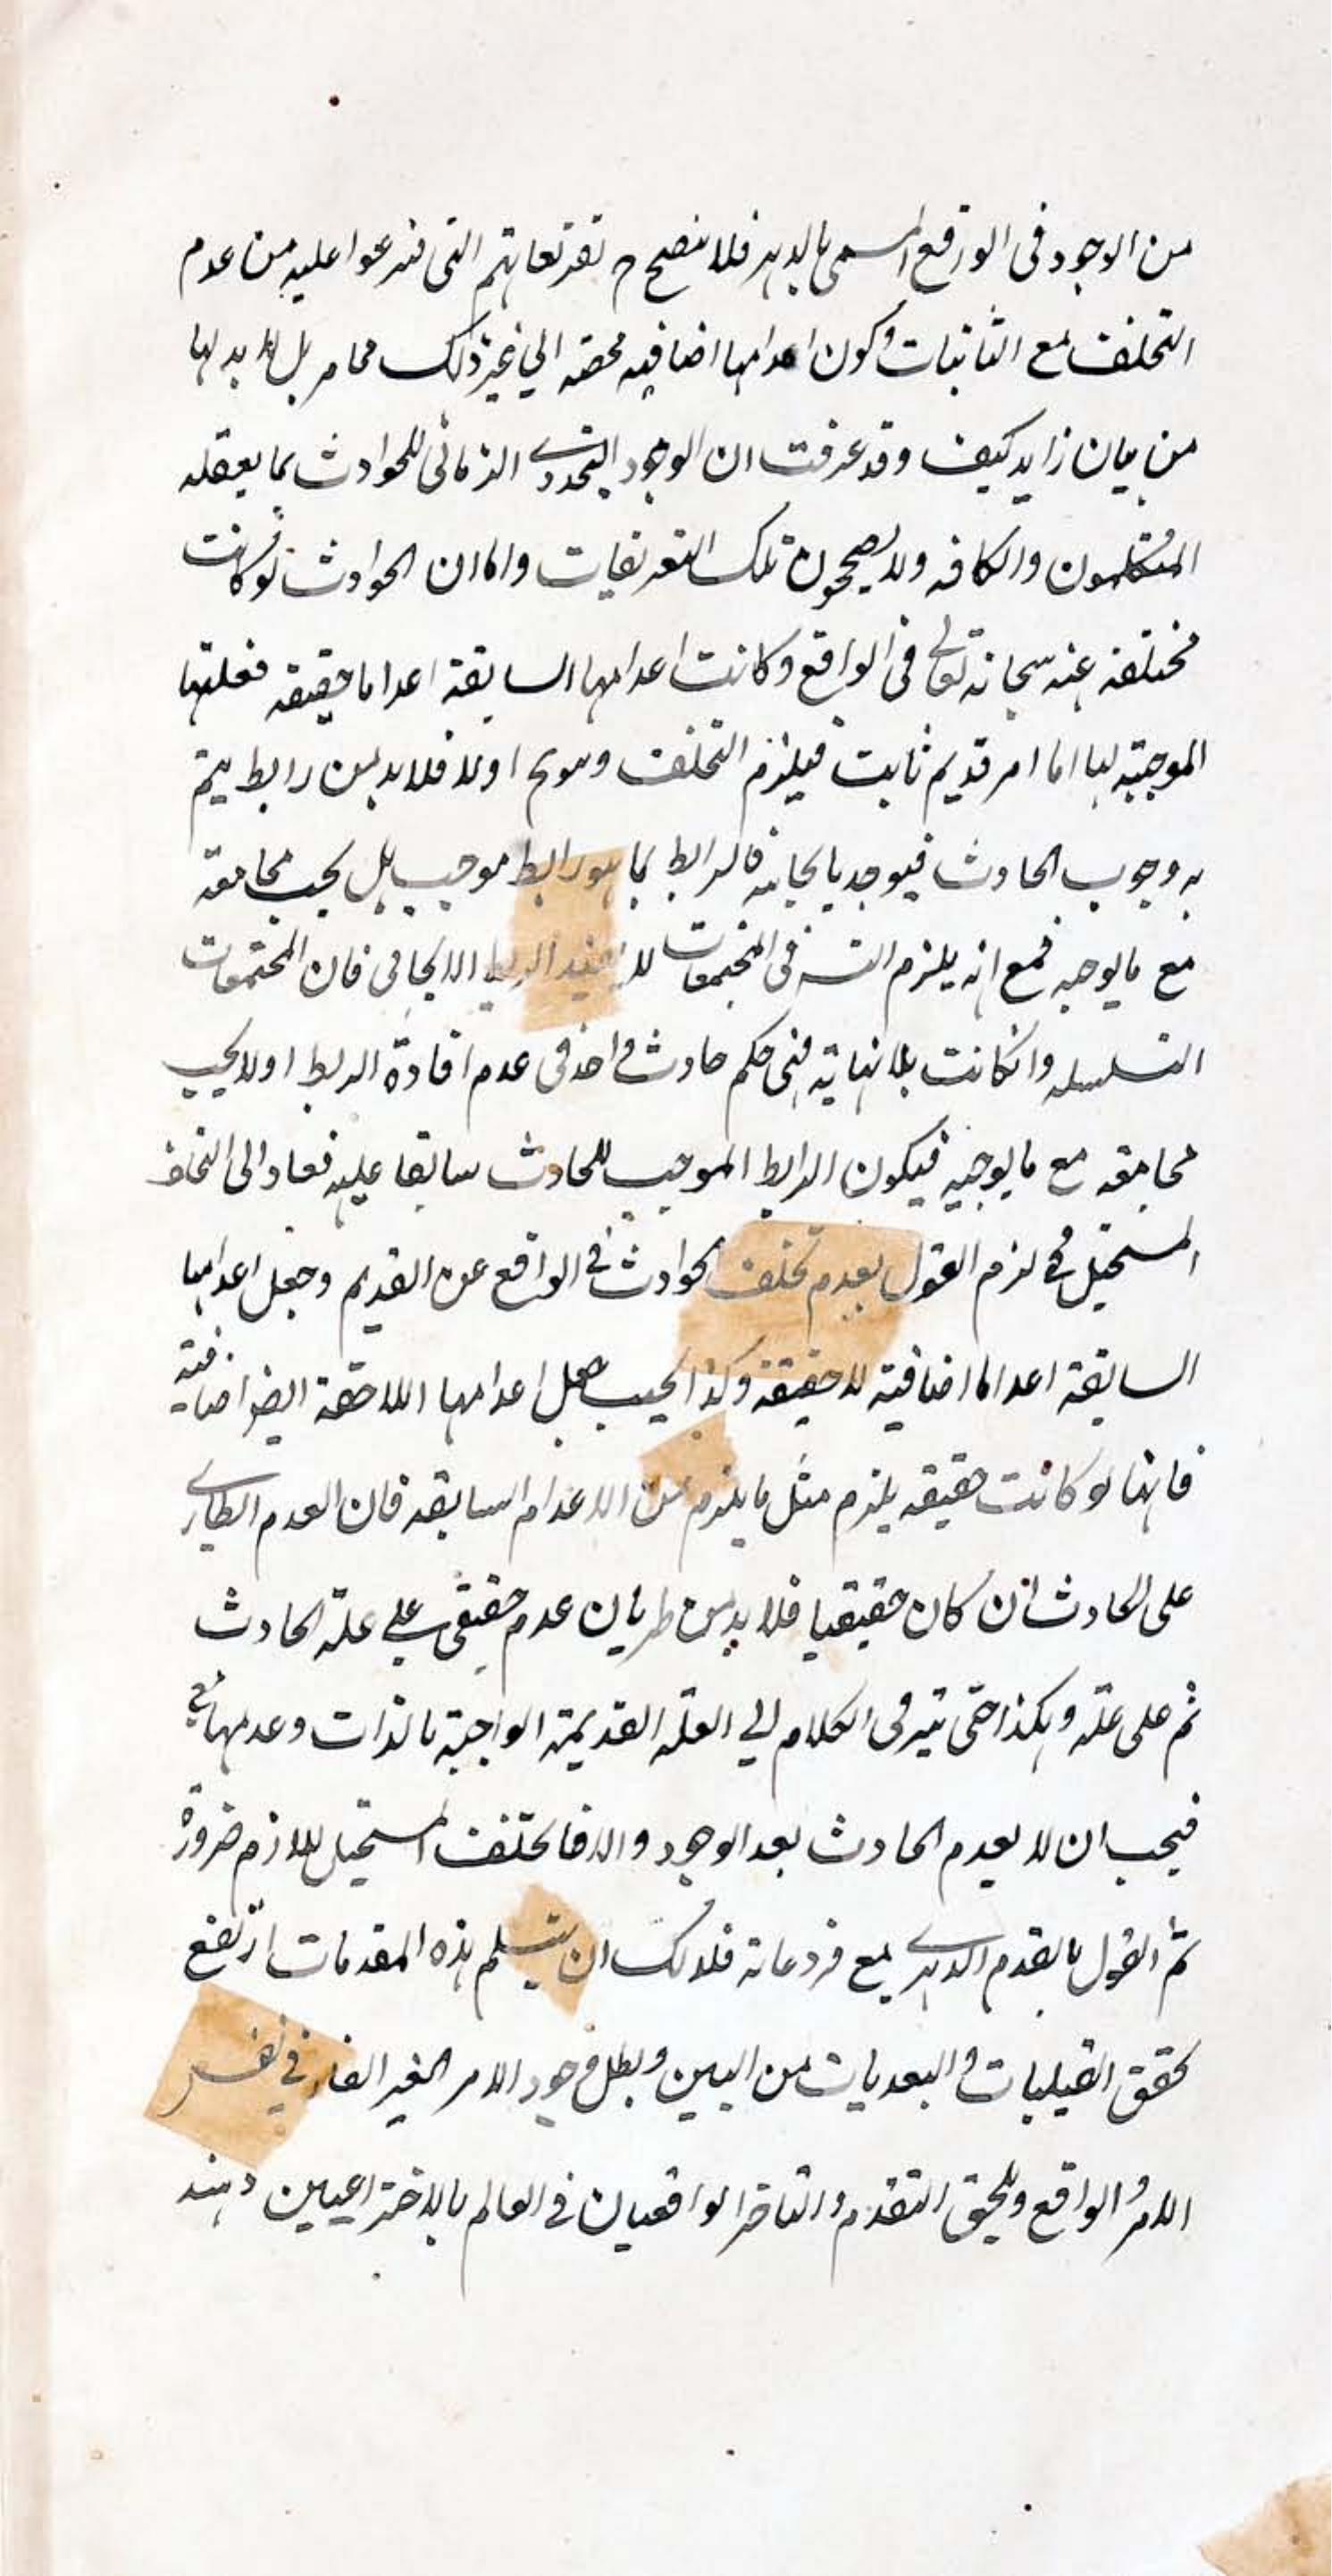 من الوجود فى الواقع المسمى بالدهر فلا ينصح ح تفريعاتهم التى فرعوا عليه من عدم
التخلف مع الثابتات وكون اعدامها اضافيه محضه الي غير ذلك مما مر بل لا بد لها
من بيان زايد كيف وقد عرفت ان الوجود التجددى الزمانى للحوادث مما يعقله
المتكلمون والكافه ولا يصححون تلك التفريعات واما ان الحوادث لو كانت
مختلفه عنه سبحانه تعالى فى الواقع وكانت اعدامها السابقة اعداما حقيقه فعلتها
الموجبه لها اما امر قديم ثابت فيلزم التخلف وهو مح او لا فلا بد من رابط يتم
به وجوب الحادث فيوجد بايجابه فالرابط بما هو رابط موجب هل يجب مجامعته
مع ما يوجبه فمع انه يلزم التسـ فى المجتمعات لا يفيد الربط الايجابى فان المجتمعات
المتسلسله وان كانت بلا نهاية فهى حكم حادث واحد فى عدم افادة الربط او لا يجب
مجامعته مع ما يوجبه فيكون الرابط الموجب للحادث سابقا عليه فعاد الى التخلف
المستحيل فح لزم القول بعدم تخلف الحوادث فى الواقع عن القديم وجعل اعدامها
السابقة اعداما اضافية لا حقيقة وكذا يجب جعل اعدامها اللاحقة ايضا اضافية
فانها لو كانت حقيقه يلزم مثل ما يلزم من الاعدام السابقه فان العدم الطارى
على الحادث ان كان حقيقيا فلا بد من طريان عدم حقيقى على علة الحادث
ثم على علته وهكذا حتى يترقى الكلام الي العلة القديمة الواجبة بالذات وعدمها مح
فيجب ان لا يعدم الحادث بعد الوجود والا فالتخلف المستحيل لازم ضرورة
ثم القول بالقدم الدهرى مع فروعاته فلا لك ان يتسلم هذه المقدمات ارتفع
تحقق القبليات والبعديات من البين وبطل وجود الامر الغير القار فى نفس
الامر والواقع ولحق التقدم والتاخر الواقعيان فى العالم بالاختراعيين وهند